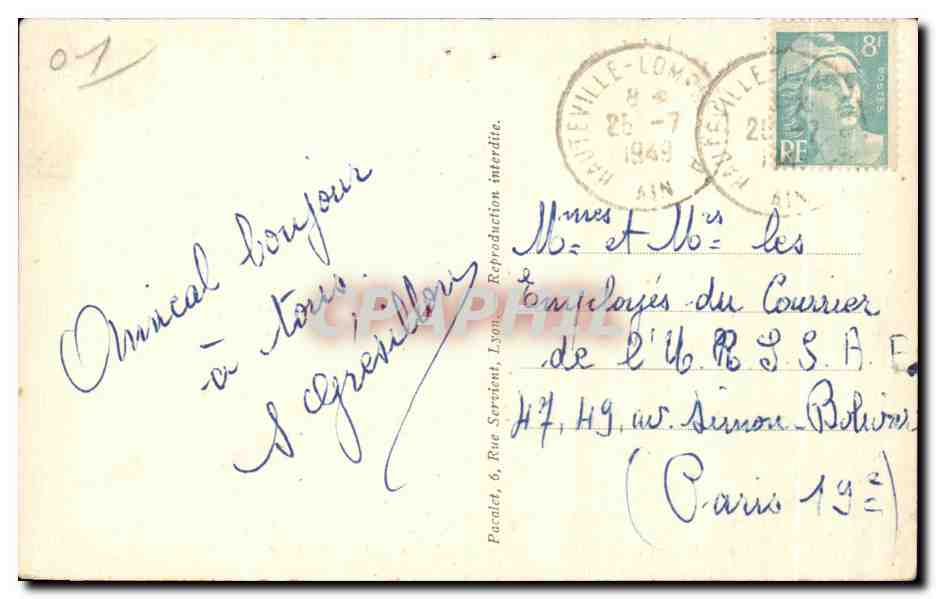 01
Amical bonjour
à tous.
S. Grésillon
Pacalet, 6, Rue Servient, Lyon. Reproduction interdite.
HAUTEVILLE-LOMP
8
25 -7
1949
AIN
HAUTEVILLE-L
25 -7
AIN
8F
POSTES
RF
Mmes et Mrs les
Employés du Courrier
de l'U.R.S.S.A.F.
47, 49, av. Simon-Bolivar
(Paris 19e)
CPAPHIL